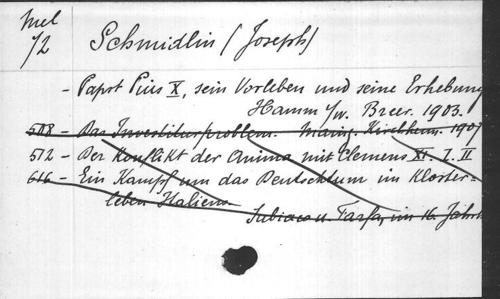 Mel
72
Schmidlin (Joseph)
- Papst Pius X, sein Vorleben und seine Erhebung
Hamm i/w. Breer. 1903.
508 - Das Investiturproblem. Mainz. Kirchheim. 1907
512 - Der Konflikt der Anima mit Clemens XI. I. II
616 - Ein Kampf um das Deutschtum im Kloster-
leben Italiens
Subiaco u. Farfa, im 16. Jahrh